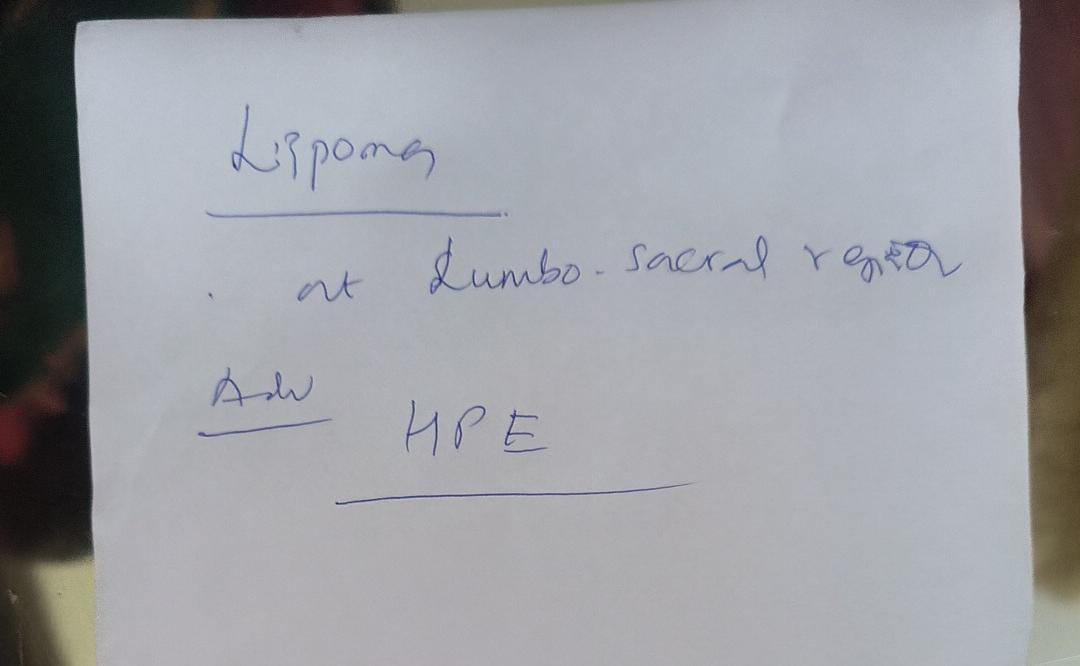 Lippoma
at Lumbo-sacral region
Adv
HPE